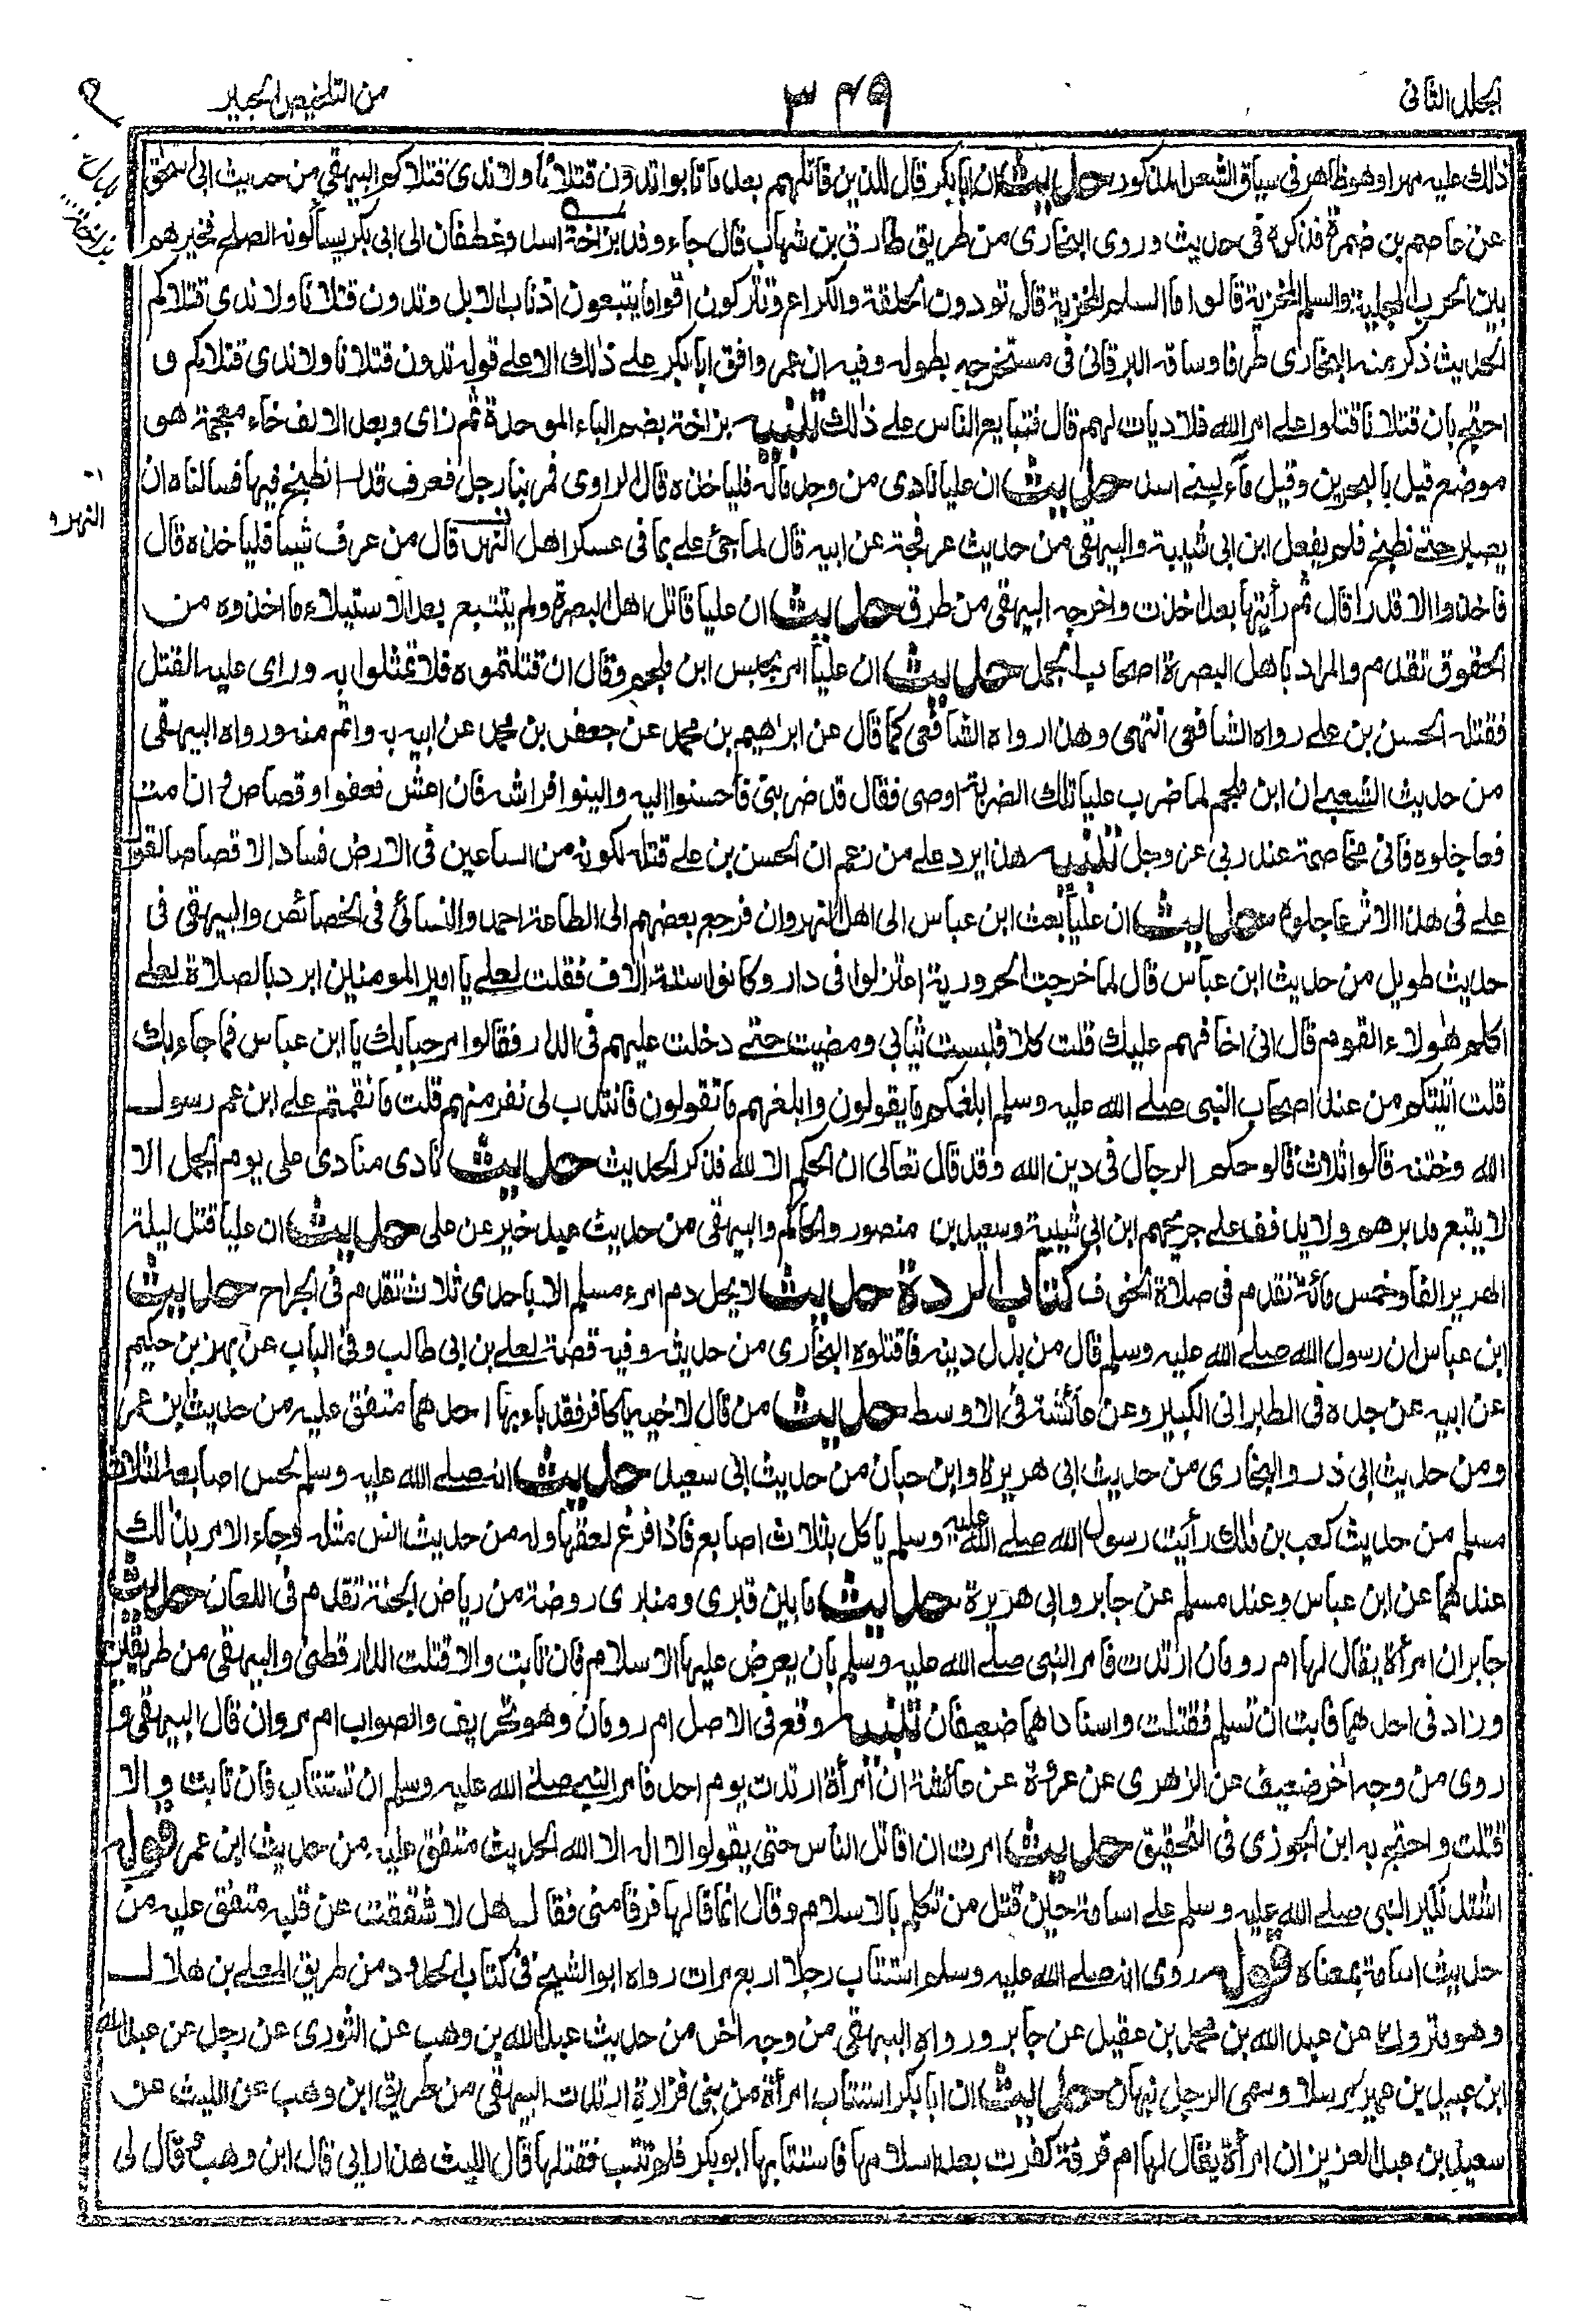 الجلد الثانى
٣٤٩
من التلخيص الحبير
ذلك عليه مهرا وهو ظاهر فى سياق الشعر المذكور حديث ان ابا بكر قال للذين قاتلهم بعد ما تابوا تدون قتلانا ولا ندى قتلاكم البيهقى من حديث ابى اسحق
عن عاصم بن ضمرة فذكره فى حديث وروى البخارى من طريق طارق بن شهاب قال جاء وفد بزاخة اسد وغطفان الى ابى بكر يسألونه الصلح فخيرهم
بين الحرب المجلية والسلم المخزية قالوا ما السلم المخزية قال تودون الحلقة والكراع وتتركون اقواما يتبعون اذناب الابل وتدون قتلانا ولا ندى قتلاكم
الحديث ذكر منه البخارى طرفا وساقه البرقانى فى مستخرجه بطوله وفيه ان عمر وافق ابا بكر على ذلك الا على قوله تدون قتلانا ولا ندى قتلاكم و
احتج بان قتلانا قتلوا على امر الله فلا ديات لهم قال فتبايع الناس على ذلك تنبيه بزاخة بضم الباء الموحدة ثم زاى وبعد الالف خاء معجمة هو
موضع قيل بالبحرين وقيل ماء لبنى اسد حديث ان عليا نادى من وجد ماله فلياخذه قال الراوى فمر بنا رجل فعرف قدرا نطبخ فيها فسالناه ان
يصبر حتى نطبخ فلم يفعل ابن ابى شيبة والبيهقى من حديث عرفجة عن ابيه قال لما جئ على بما فى عسكر اهل النهر قال من عرف شيئا فلياخذه قال
النهرو
فاخذوا الا قدرا قال ثم رأيتها بعد اخذت واخرجه البيهقى من طرق حديث ان عليا قاتل اهل البصرة ولم يتتبع بعد الاستيلاء ما اخذوه من
الحقوق تقدم والمراد باهل البصرة اصحاب الجمل حديث ان عليا امر بحبس ابن ملجم وقال ان قتلتموه فلا تمثلوا به وراى عليه القتل
فقتله الحسن بن على رواه الشافعى انتهى وهذا رواه الشافعى كما قال عن ابرهيم بن محمد عن جعفر بن محمد عن ابيه به واتم منه ورواه البيهقى
من حديث الشعبى ان ابن ملجم لما ضرب عليا تلك الضربة اوصى فقال قد ضربنى فاحسنوا اليه والينوا فراشه فان اعش فعفو او قصاص وان امت
فعاجلوه فانى مخاصمه عند ربى عز وجل تنبيه هذا يرد على من زعم ان الحسن بن على قتله لكونه من الساعين فى الارض فسادا لا قصاصا لقول
على فى هذا الاثر عاجلوه حديث ان عليا بعث ابن عباس الى اهل النهروان فرجع بعضهم الى الطاعة احمد والنسائى فى الخصائص والبيهقى فى
حديث طويل من حديث ابن عباس قال لما خرجت الحرورية اعتزلوا فى دار وكانوا ستة الاف فقلت لعلى يا امير المومنين ابرد بالصلاة لعلى
اكلم هولاء القوم قال انى اخافهم عليك قلت كلا فلبست ثيابى ومضيت حتى دخلت عليهم فى الدار فقالوا مرحبا بك يا ابن عباس فما جاء بك
قلت اتيتكم من عند اصحاب النبى صلى الله عليه وسلم ابلغكم ما يقولون وابلغهم ما تقولون فانتدب لى نفر منهم قلت ما نقمتم على ابن عم رسول
الله وختنه قالوا ثلاث قالوا حكم الرجال فى دين الله وقد قال تعالى ان الحكم الا لله فذكر الحديث حديث نادى منادى على يوم الجمل الا
لا يتبع مدبرهم ولا يذفف على جريحهم ابن ابى شيبة وسعيد بن منصور والحاكم والبيهقى من حديث عبد خير عن على حديث ان عليا قتل ليلة
الهرير الفا وخمس مائة تقدم فى صلاة الخوف كتاب الردة حديث لا يحل دم امرء مسلم الا باحدى ثلاث تقدم فى الجراح حديث
ابن عباس ان رسول الله صلى الله عليه وسلم قال من بدل دينه فاقتلوه البخارى من حديثه وفيه قصة لعلى بن ابى طالب وفى الباب عن بهز بن حكيم
عن ابيه عن جده فى الطبرانى الكبير وعن عائشة فى الاوسط حديث من قال لاخيه يا كافر فقد باء بها احدهما متفق عليه من حديث ابن عمر
ومن حديث ابى ذر والبخارى من حديث ابى هريرة وابن حبان من حديث ابى سعيد حديث انه صلى الله عليه وسلم لحس اصابعه الثلاث
مسلم من حديث كعب بن مالك رأيت رسول الله صلى الله عليه وسلم ياكل بثلاث اصابع فاذا فرغ لعقها وله من حديث انس مثله وجاء الامر بذلك
عندهما عن ابن عباس وعند مسلم عن جابر وابى هريرة حديث ما بين قبرى ومنبرى روضة من رياض الجنة تقدم فى اللعان حديث
جابر ان امرأة يقال لها ام رومان ارتدت فامر النبى صلى الله عليه وسلم بان يعرض عليها الاسلام فان تابت والا قتلت الدارقطنى والبيهقى من طريقين
وزاد فى احدهما فابت ان تسلم فقتلت واسناداهما ضعيفان تنبيه وقع فى الاصل ام رومان وهو تحريف والصواب ام مروان قال البيهقى و
روى من وجه اخر ضعيف عن الزهرى عن عروة عن عائشة ان امرأة ارتدت يوم احد فامر النبى صلى الله عليه وسلم ان تستتاب فان تابت والا
قتلت واحتج به ابن الجوزى فى التحقيق حديث امرت ان اقاتل الناس حتى يقولوا لا اله الا الله الحديث متفق عليه من حديث ابن عمر قوله
اشتد نكير النبى صلى الله عليه وسلم على اسامة حين قتل من تكلم بالاسلام وقال انما قالها فرقا منى فقال هل لا شققت عن قلبه متفق عليه من
حديث اسامة بمعناه قوله روى انه صلى الله عليه وسلم استتاب رجلا اربع مرات رواه ابو الشيخ فى كتاب الحدود من طريق المعلى بن هلال
وهو متروك عن عبد الله بن محمد بن عقيل عن جابر ورواه البيهقى من وجه اخر من حديث عبد الله بن وهب عن الثورى عن رجل عن عبد الله
ابن عبيد بن عمير مرسلا وسمى الرجل نبهان حديث ان ابا بكر استتاب امرأة من بنى فزارة ارتدت البيهقى من طريق ابن وهب عن الليث عن
سعيد بن عبد العزيز ان امرأة يقال لها ام قرفة كفرت بعد اسلامها فاستتابها ابو بكر فلم تتب فقتلها قال الليث هذا رايى قال ابن وهب قال لى